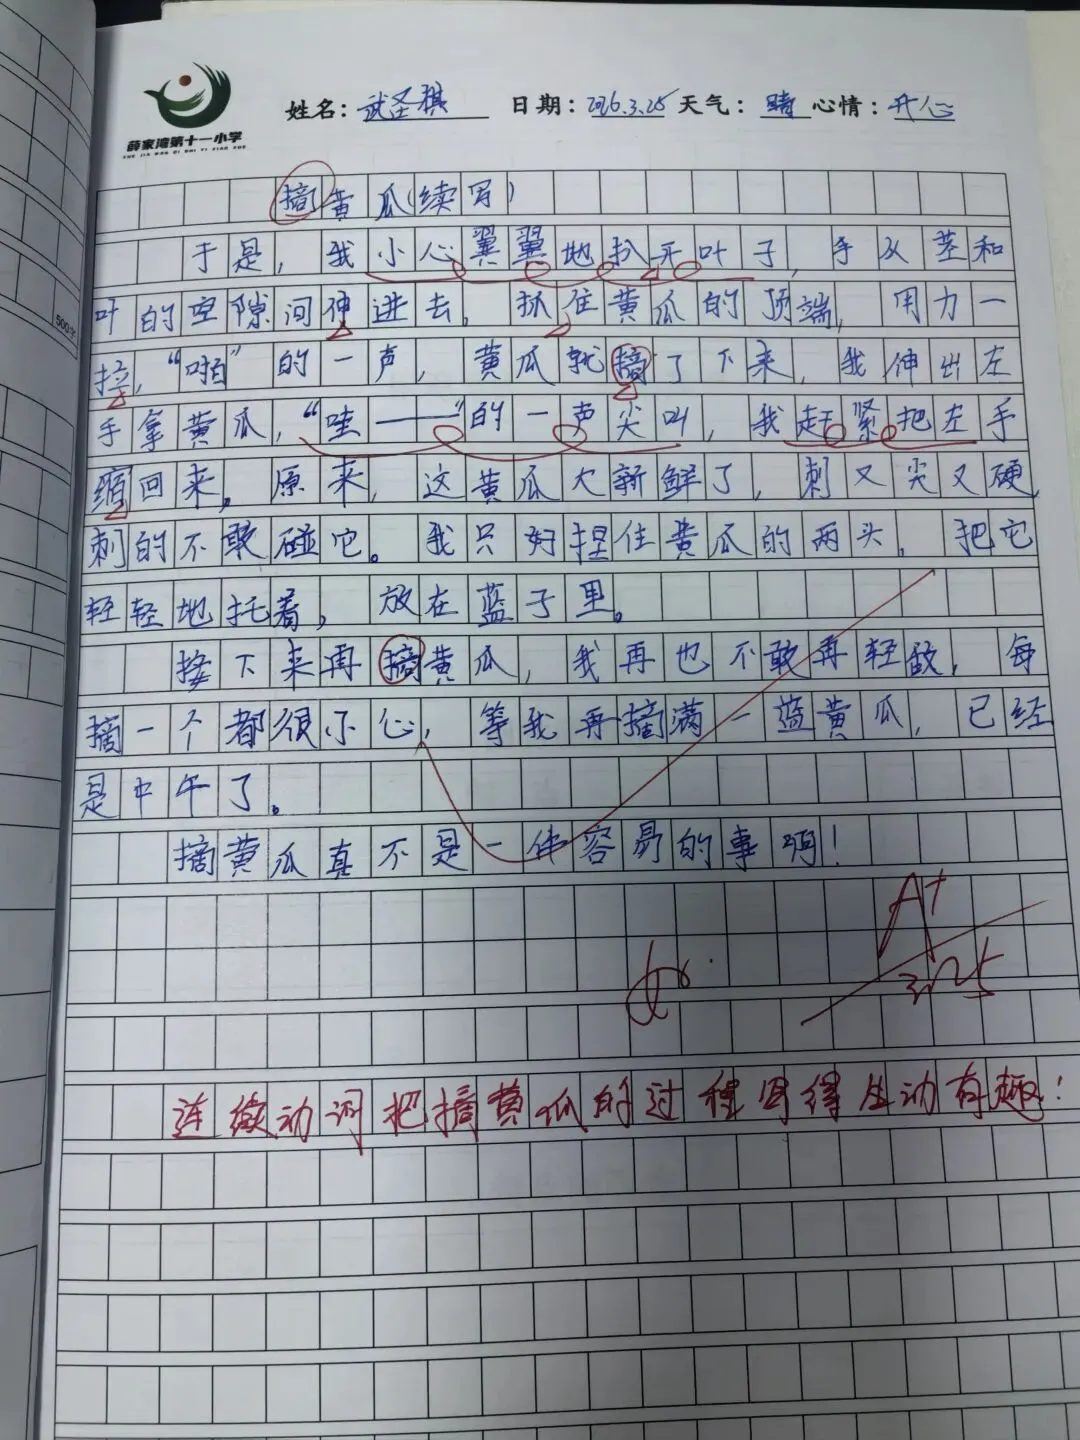 薛家湾第十一小学
XUE JIA WAN DI SHI YI XIAO XUE
姓名：武圣祺 日期：2026.3.25 天气：晴 心情：开心
500字
摘黄瓜（续写）
于是，我小心翼翼地扒开叶子，手从茎和
叶的空隙间伸进去。抓住黄瓜的顶端，用力一
拧，“啪”的一声，黄瓜就摘了下来，我伸出左
手拿黄瓜，“哇——”的一声尖叫，我赶紧把左手
缩回来。原来，这黄瓜太新鲜了，刺又尖又硬，
刺的不敢碰它。我只好捏住黄瓜的两头，把它
轻轻地托着，放在蓝子里。
接下来再摘黄瓜，我再也不敢再轻敌，每
摘一个都很小心，等我再摘满一蓝黄瓜，已经
是中午了。
摘黄瓜真不是一件容易的事啊！
A+
3.25
连续动词把摘黄瓜的过程写得生动有趣！